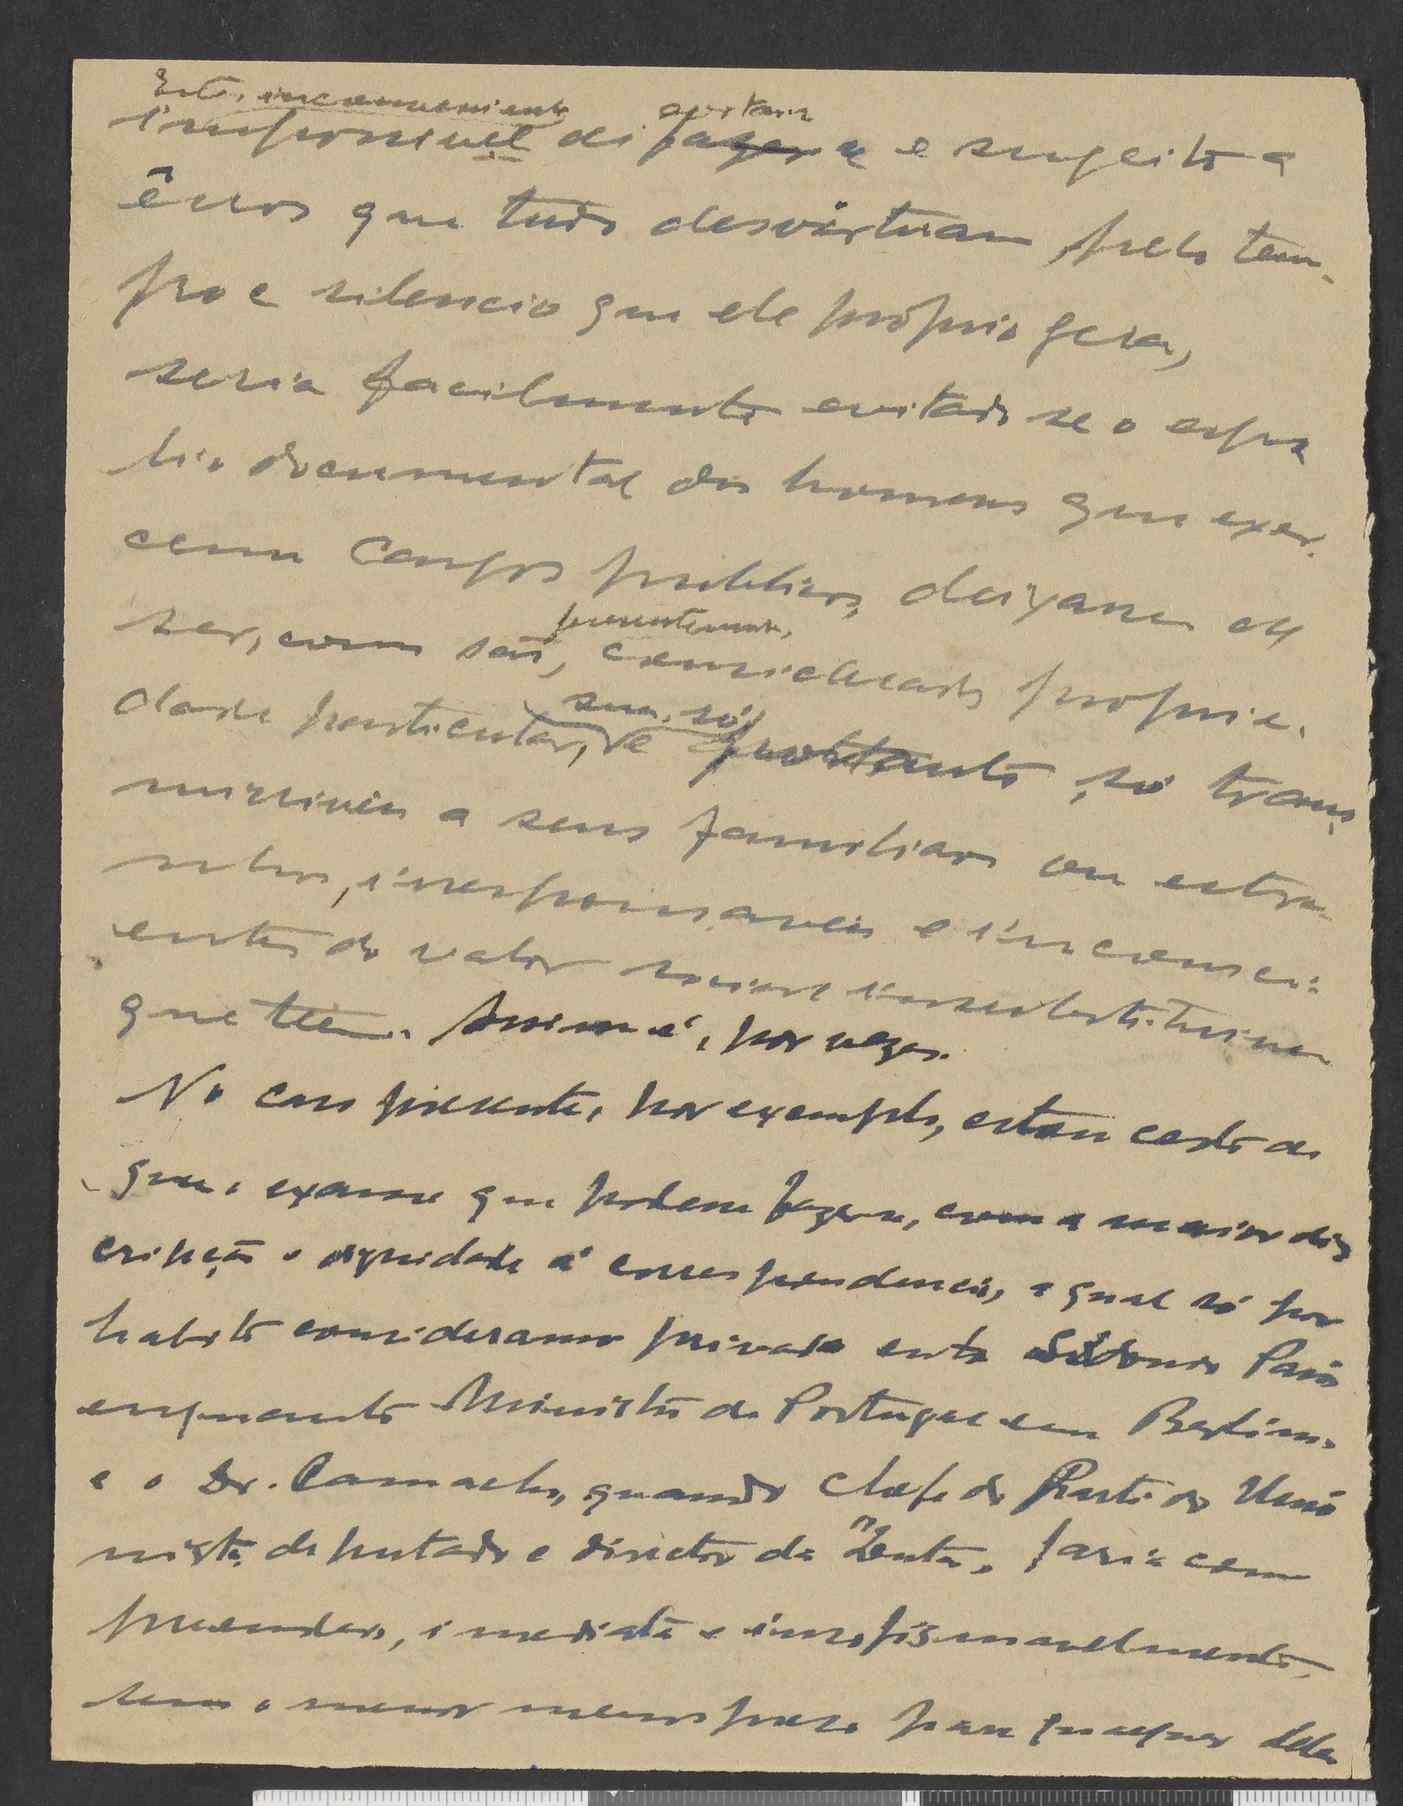 Este, inconveniente
impossivel de fazer se e sugeito a
êrros que tudo desvirtuam, pelo tem-
po e silencio que ele próprio gera,
seria facilmente evitado se o espo
lio documental dos homens que exer-
cem cargos publicos, deixasse de
presentemente,
ser, como são, considerado proprie-
sua, só
dade particular, e portanto, só trans
missivel a seus familiares ou estra-
nhos, irresponsaveis e inconsci-
entes do valor insubstituivel
que teem. Assim é, por vezes.
No caso presente, por exemplo, estou certo de
que o exame que podem fazer-se, com a maior dis
cripção e dignidade á correspondencia, a qual só por
habito consideramos privada entre Sidonio Pais
enquanto Ministro de Portugal em Berlim,
e o Dr. Camacho, quando chefe do Partido Unio
nista, deputado e director da "Lucta", faria com
preender, imediata e insofismavelmente,
sem o menor menospreso para qualquer deles